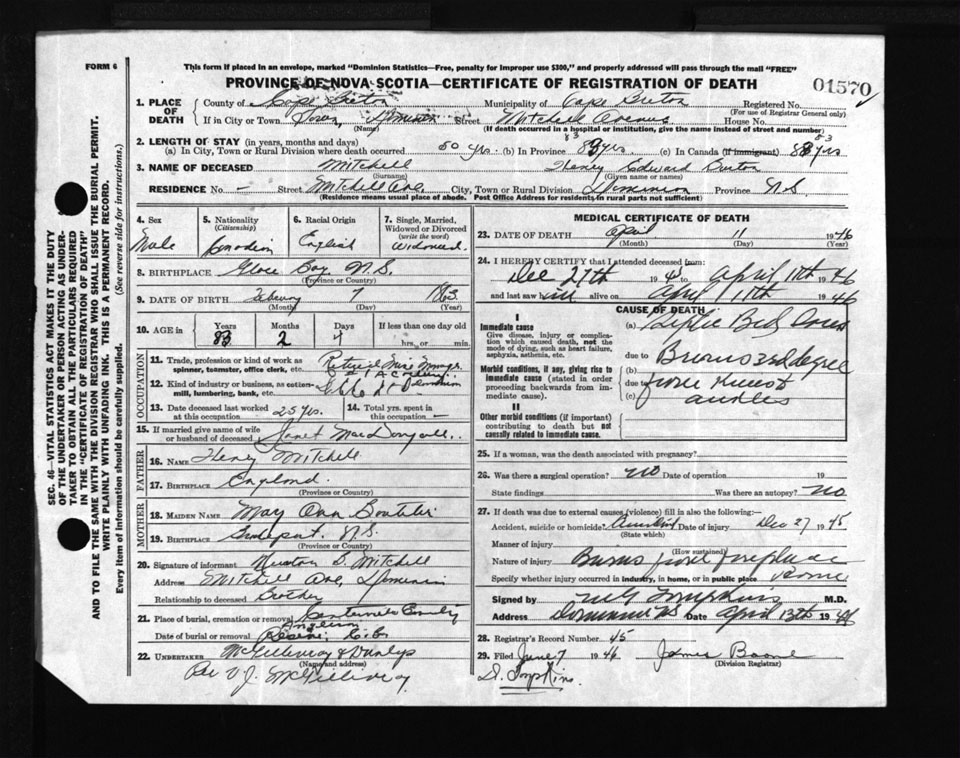 FORM 6
This form if placed in an envelope, marked "Dominion Statistics—Free, penalty for improper use $300," and properly addressed will pass through the mail "FREE"
PROVINCE OF NOVA SCOTIA—CERTIFICATE OF REGISTRATION OF DEATH
01570
1. PLACE OF DEATH
County of Cape Breton Municipality of Cape Breton Registered No.
(For use of Registrar General only)
If in City or Town Town, Dominion Street Mitchell Avenue House No.
(Name) (If death occurred in a hospital or institution, give the name instead of street and number)
2. LENGTH OF STAY (in years, months and days)
(a) In City, Town or Rural Division where death occurred 50 yrs. (b) In Province 83 yrs (c) In Canada (if immigrant) 83 yrs
3. NAME OF DECEASED Mitchell Henry Edward Burton
(Surname) (Given name or names)
RESIDENCE No. — Street Mitchell Ave. City, Town or Rural Division Dominion Province N.S
(Residence means usual place of abode. Post Office Address for residents in rural parts not sufficient)
4. Sex Male
5. Nationality (Citizenship) Canadian
6. Racial Origin English
7. Single, Married, Widowed or Divorced (write the word) Widowed.
8. BIRTHPLACE Glace Bay N.S.
(Province or Country)
9. DATE OF BIRTH February 7 1863
(Month) (Day) (Year)
10. AGE in Years 83 Months 2 Days 4 If less than one day old hrs. or min.
OCCUPATION
11. Trade, profession or kind of work as spinner, teamster, office clerk, etc. Retired Mine
12. Kind of industry or business, as cotton-mill, lumbering, bank, etc. Dominion
13. Date deceased last worked at this occupation 25 yrs.
14. Total yrs. spent in this occupation —
15. If married give name of wife or husband of deceased Janet MacDougall.
FATHER
16. NAME Henry Mitchell
17. BIRTHPLACE England.
(Province or Country)
MOTHER
18. MAIDEN NAME May Ann Boutilier
19. BIRTHPLACE N.S.
(Province or Country)
20. Signature of informant S. Mitchell
Address Mitchell Ave, Dominion
Relationship to deceased
21. Place of burial, cremation or removal
Date of burial or removal C.B.
22. UNDERTAKER McGillivray &
(Name and address)
Rev V J. McGillivray
MEDICAL CERTIFICATE OF DEATH
23. DATE OF DEATH April 11 1946
(Month) (Day) (Year)
24. I HEREBY CERTIFY that I attended deceased from:
Dec 27th 1945 to April 11th 1946
and last saw him alive on April 11th 1946
CAUSE OF DEATH
I
Immediate cause
Give disease, injury or complication which caused death, not the mode of dying, such as heart failure, asphyxia, asthenia, etc.
(a) Septic Bed Sores
due to
Morbid conditions, if any, giving rise to immediate cause (stated in order proceeding backwards from immediate).
(b) Burns 3rd degree
due to
(c) from knees to ankles
II
Other morbid conditions (if important) contributing to death but not causally related to immediate cause.
25. If a woman, was the death associated with pregnancy?
26. Was there a surgical operation? No Date of operation 19
State findings Was there an autopsy? No
27. If death was due to external causes (violence) fill in also the following:—
Accident, suicide or homicide? Accident Date of injury Dec 27 1945
(State which)
Manner of injury
(How sustained)
Nature of injury Burns from fireplace
Specify whether injury occurred in industry, in home, or in public place Home
Signed by Tompkins M.D.
Address Dominion NS Date April 13th 1946
28. Registrar's Record Number 45
29. Filed June 7 1946 James Boone
(Division Registrar)
D. Tompkins.
SEC. 46—VITAL STATISTICS ACT MAKES IT THE DUTY
OF THE UNDERTAKER OR PERSON ACTING AS UNDER-
TAKER TO OBTAIN ALL THE PARTICULARS REQUIRED
IN THE "CERTIFICATE OF REGISTRATION OF DEATH"
AND TO FILE THE SAME WITH THE DIVISION REGISTRAR WHO SHALL ISSUE THE BURIAL PERMIT.
WRITE PLAINLY WITH UNFADING INK. THIS IS A PERMANENT RECORD.
Every item of information should be carefully supplied. (See reverse side for instructions.)